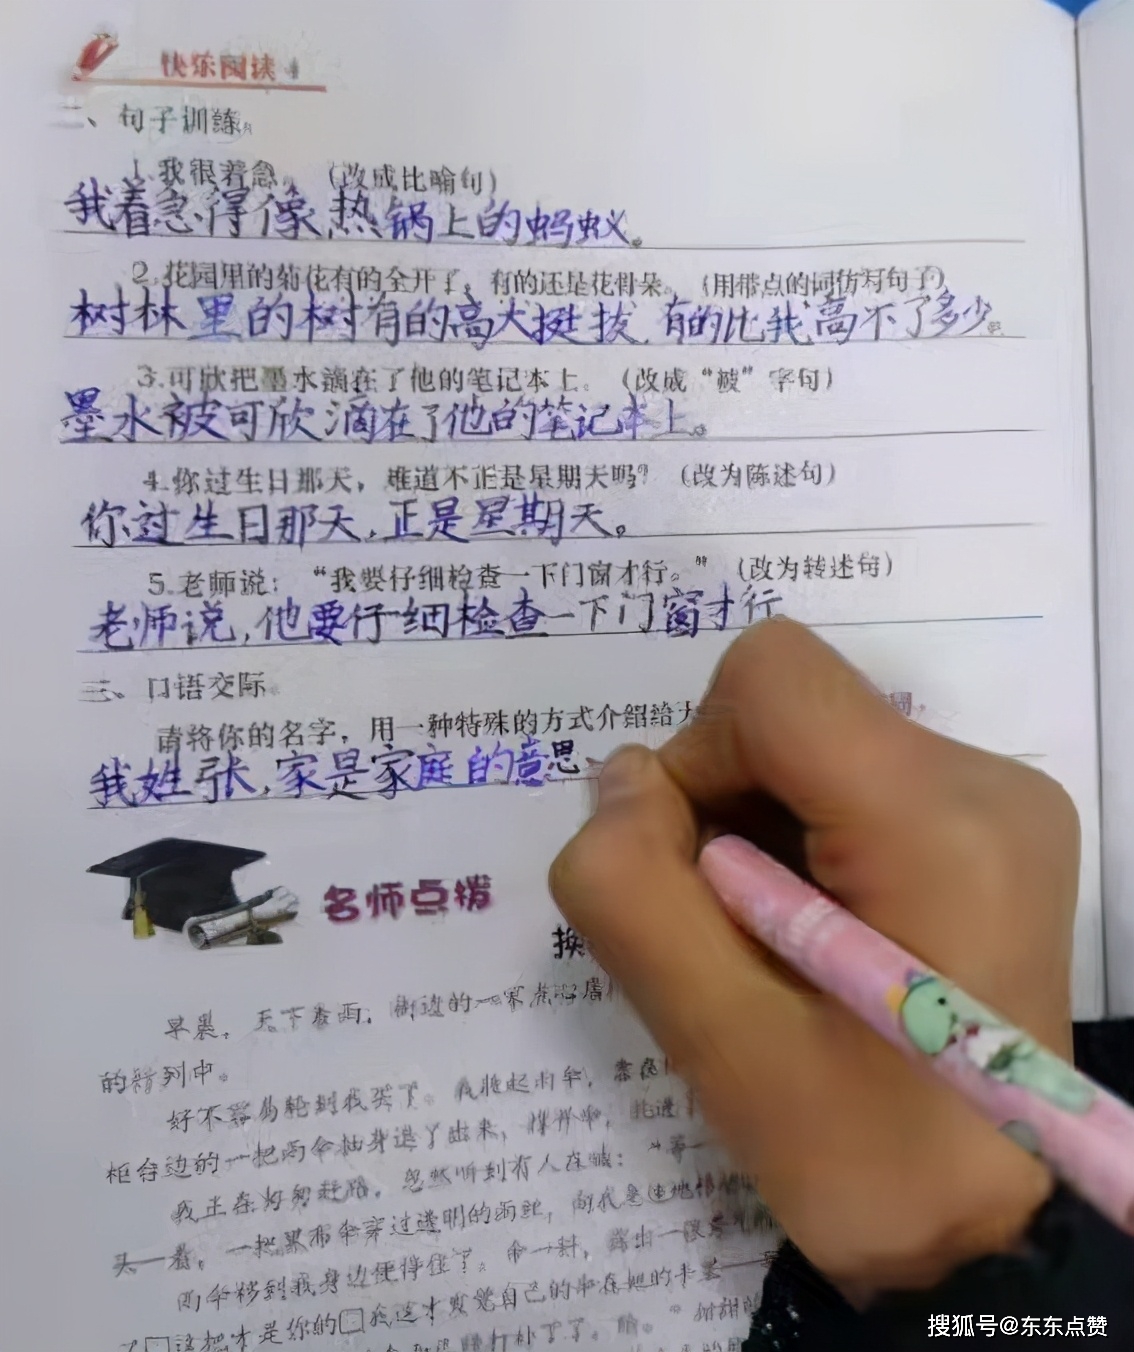 快乐阅读
二、句子训练。
1.我很着急。(改成比喻句)
我着急得像热锅上的蚂蚁。
2.花园里的菊花有的全开了,有的还是花骨朵。(用带点的词仿写句子)
树林里的树有的高大挺拔,有的比我高不了多少。
3.可欣把墨水滴在了他的笔记本上。(改成“被”字句)
墨水被可欣滴在了他的笔记本上。
4.你过生日那天,难道不正是星期天吗?(改为陈述句)
你过生日那天,正是星期天。
5.老师说:“我要仔细检查一下门窗才行。”(改为转述句)
老师说,他要仔细检查一下门窗才行
三、口语交际。
请将你的名字,用一种特殊的方式介绍给大
我姓张,家是家庭的意思
名师点拨
换
早晨,天下着雨,街边的一家点心店
的行列中。
好不容易轮到我买了。我收起雨伞,
柜台边的一把雨伞抽身退了出来,撑开伞,
我正在匆匆赶路,忽然听到有人在喊:“等一
头一看,一把黑布伞穿过透明的雨丝,向我急速地
雨伞移到我身边便停住了。伞一斜,露出一
这把才是你的□我这才发觉自己的
搜狐号@东东点赞